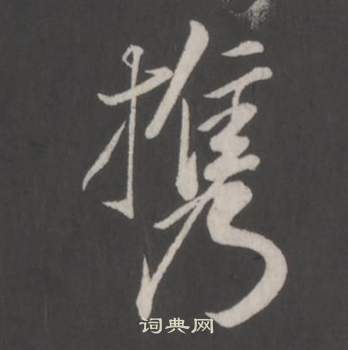 携
词典网